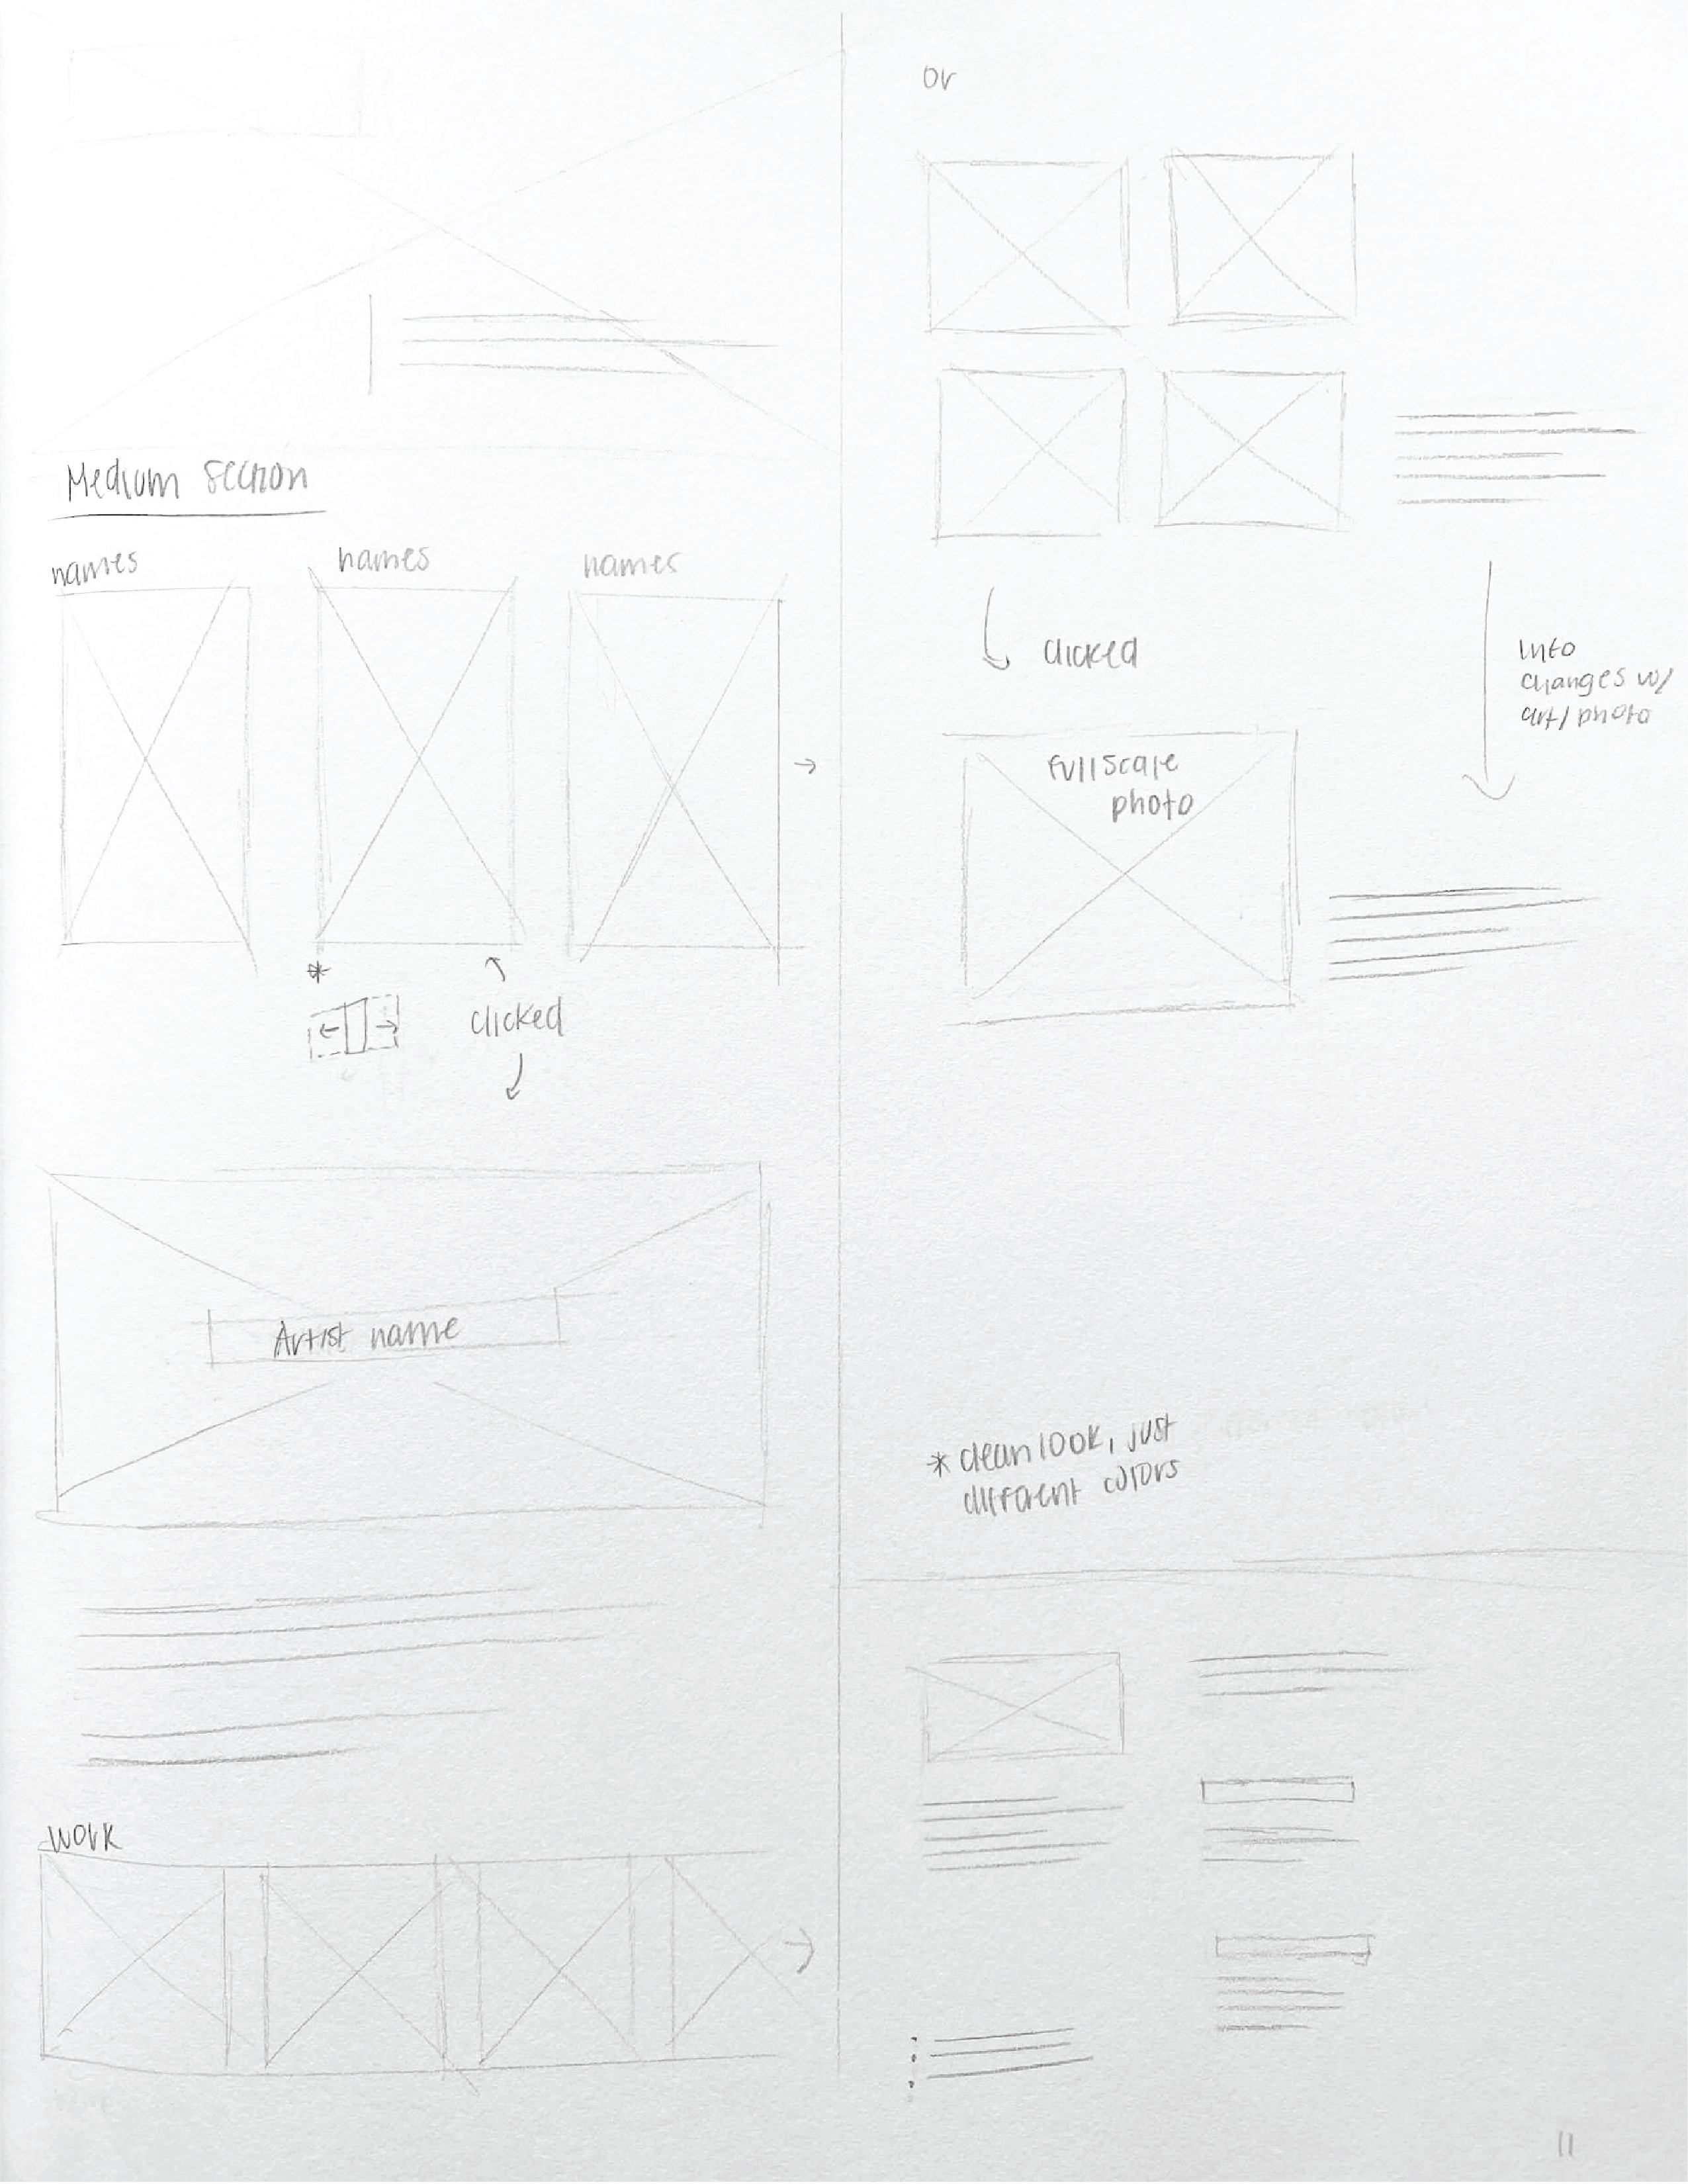 Medium Section
names names names
clicked
Artist name
work
or
clicked
info
changes w/
art/photo
full scale
photo
* clean look, just
different colors
11